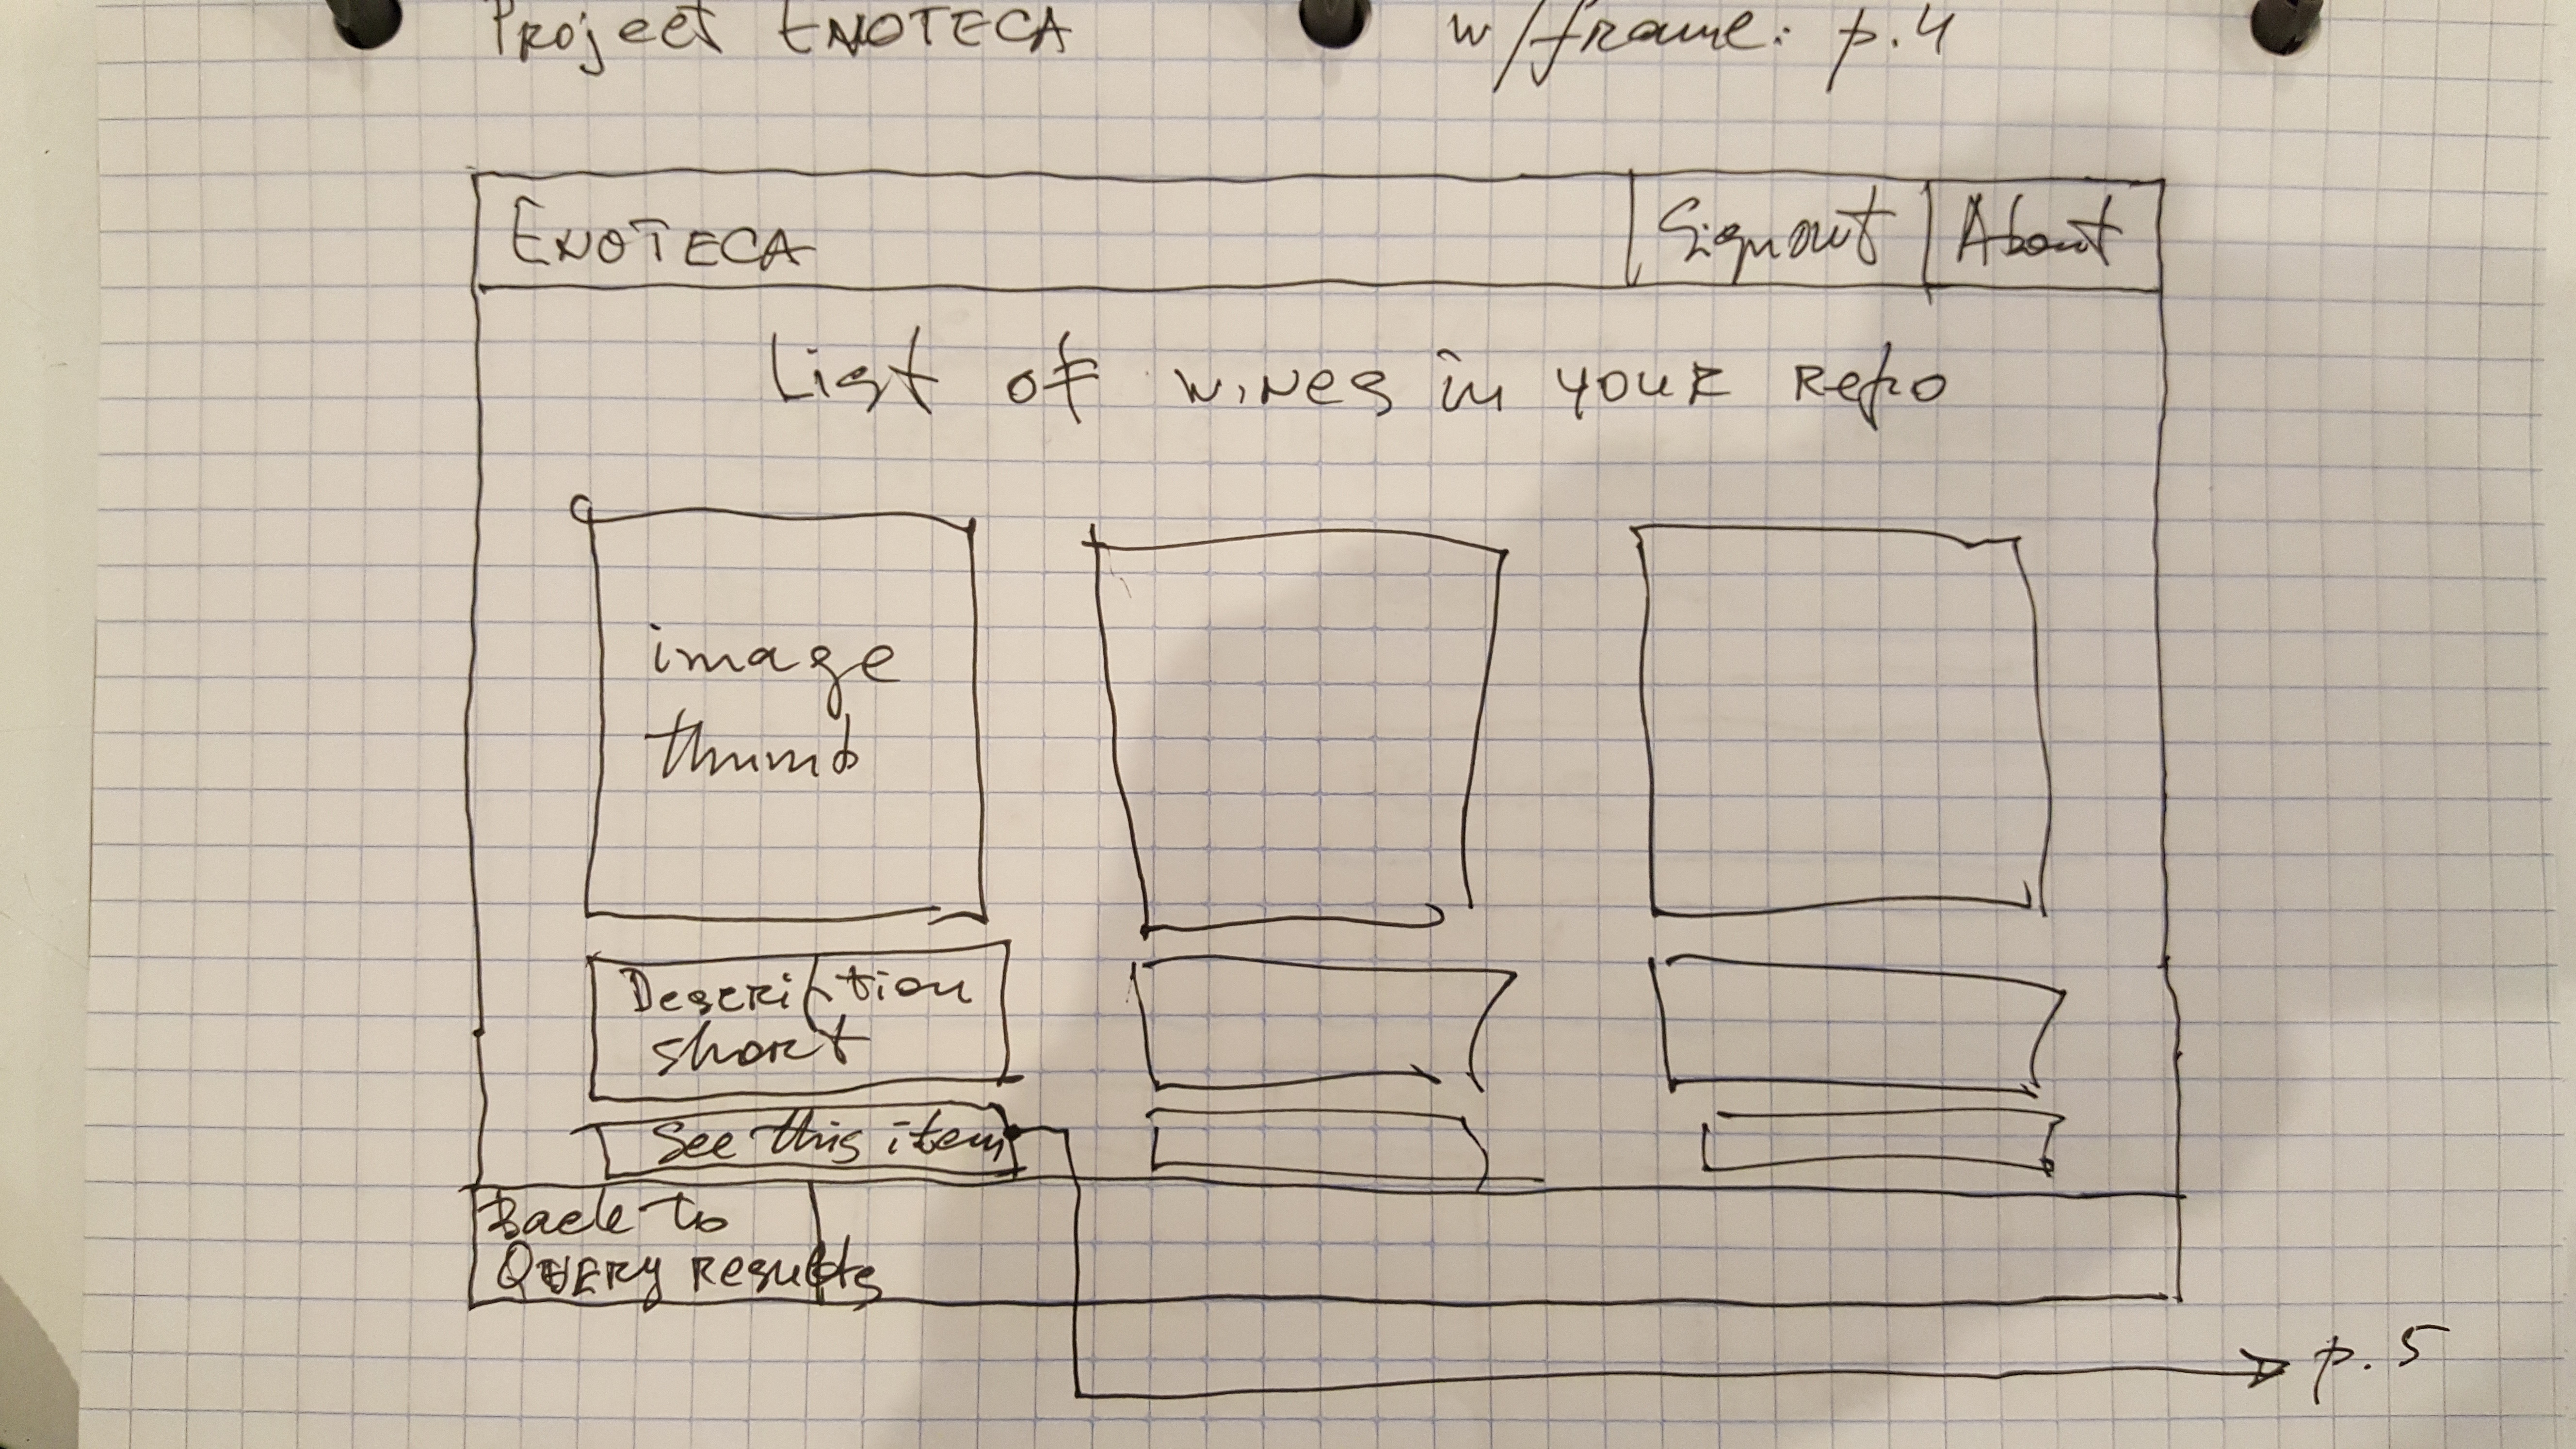 Project ENOTECA w/frame: p.4
ENOTECA Signout About
List of wines in your Repo
image
thumb
Description
short
See this item
Back to
QUERY results
p.5